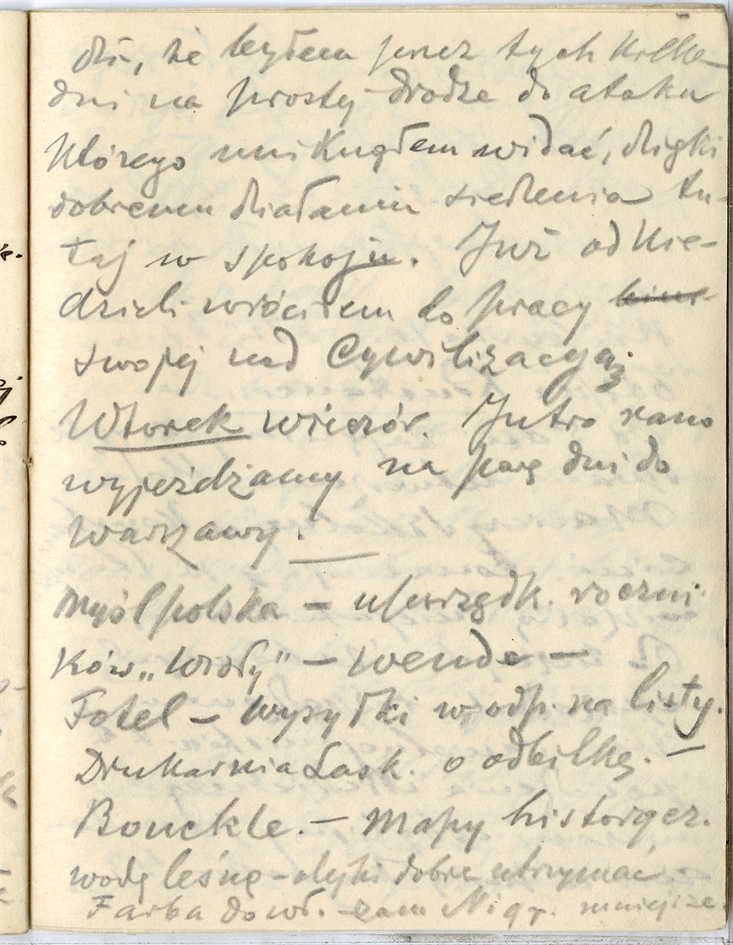 dzi, że byłem przez tych kilka
dni na prostej drodze do ataku
którego uniknąłem widać, dzięki
dobremu działaniu siedzenia tu-
taj w spokoju. Już od nie-
dzieli wróciłem do pracy
swojej nad Cywilizacyą
Wtorek wieczór. Jutro rano
wyjeżdżamy na parę dni do
Warszawy.
Myśl polska – uporządk. roczni-
ków „Wisły” – Wende –
Fotel – Wysyłki w odp. na listy.
Drukarnia Lask. o odbitkę. –
Bouckle. – Mapy histor. ger.
wodę leśną – dobrze utrzymać
Farba do wł. – mniejsze.